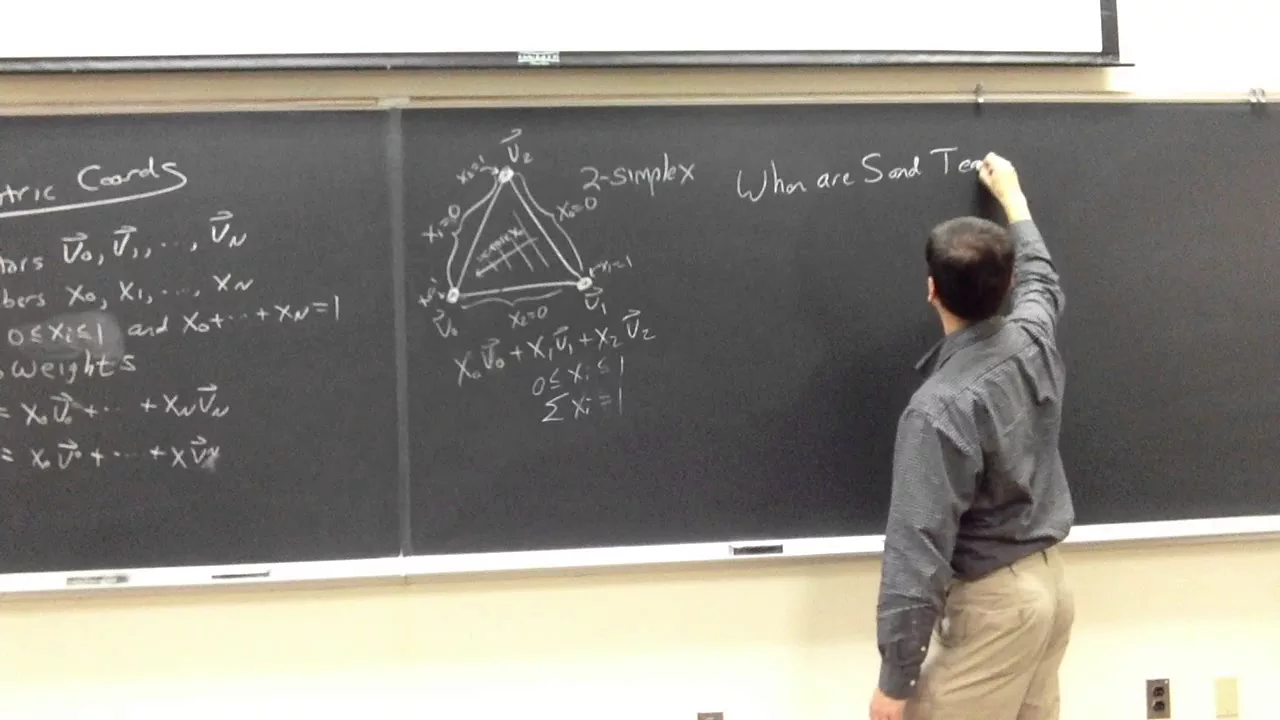 tric Coords
tors V⃗₀, V⃗₁, ..., V⃗_N
bers x₀, x₁, ..., x_N
0 ≤ xᵢ ≤ 1 and x₀+⋯+x_N=1
weights
= x₀V⃗₀+⋯+x_NV⃗_N
= x₀V⃗₀+⋯+xV⃗_N
V⃗₂
x₂=1
2-simplex
x₁=0
x₀=0
x₁=1
V⃗₀
x₂=0
V⃗₁
x₀V⃗₀+x₁V⃗₁+x₂V⃗₂
0≤xᵢ≤1
∑xᵢ=1
When are S and T